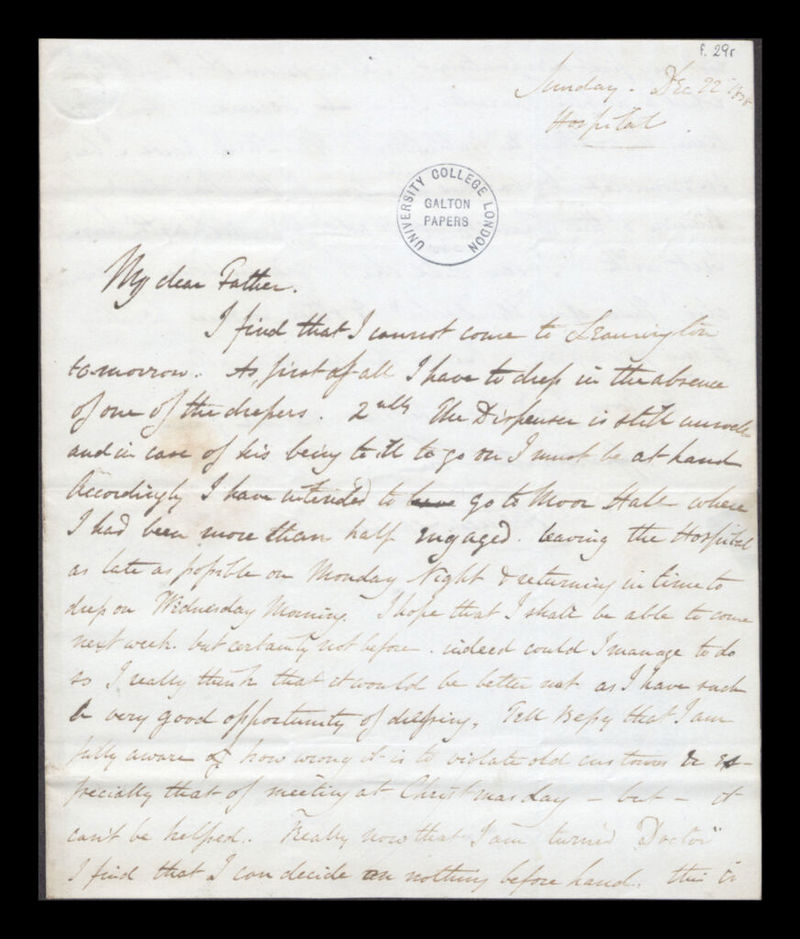 f. 29r
Sunday. Dec 22 1838
Hospital.
UNIVERSITY COLLEGE LONDON
GALTON
PAPERS
My dear Father.
I find that I cannot come to Leamington
tomorrow. As first of all I have to dress in the absence
of one of the dressers. 2ndly The Dispenser is still unwell
and in case of his being to ill to go on I must be at hand
Accordingly I have intended to have go to Moor Hall where
I had been more than half engaged. leaving the Hospital
as late as possible on Monday Night & returning in time to
dress on Wednesday Morning. I hope that I shall be able to come
next week. but certainly not before. indeed could I manage to do
so I really think that it would be better not as I have such
a very good opportunity of dressing. Tell Bessy that I am
fully aware of how wrong it is to violate old customs & es-
pecially that of meeting at Christmas day – but – it
can't be helped. Really now that I am turned "Doctor"
I find that I can decide on nothing before hand. this is